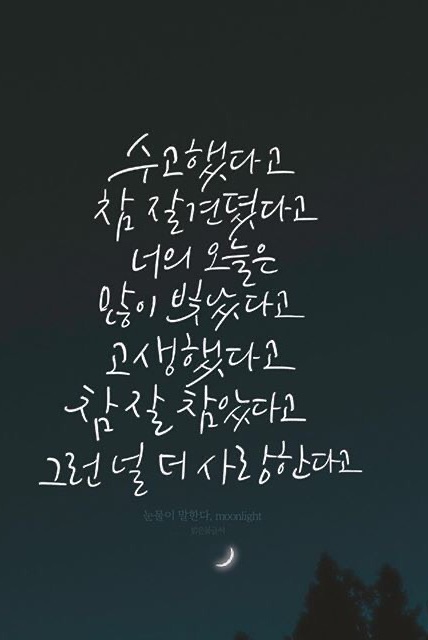 수고했다고
참 잘 견뎠다고
너의 오늘은
많이 빛났다고
고생했다고
참 잘 참았다고
그런 널 더 사랑한다고
눈물이 말한다, moonlight